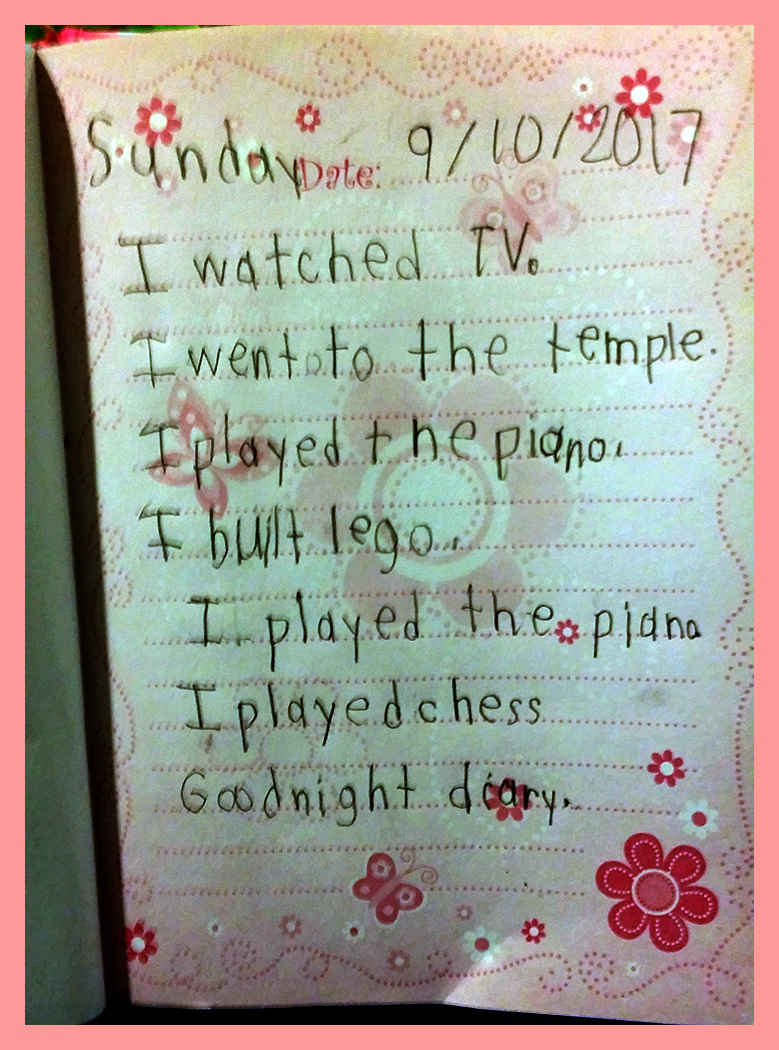 Sunday Date: 9/10/2017
I watched TV.
I went to the temple.
I played the piano.
I built lego.
I played the piano
I played chess
Goodnight diary.